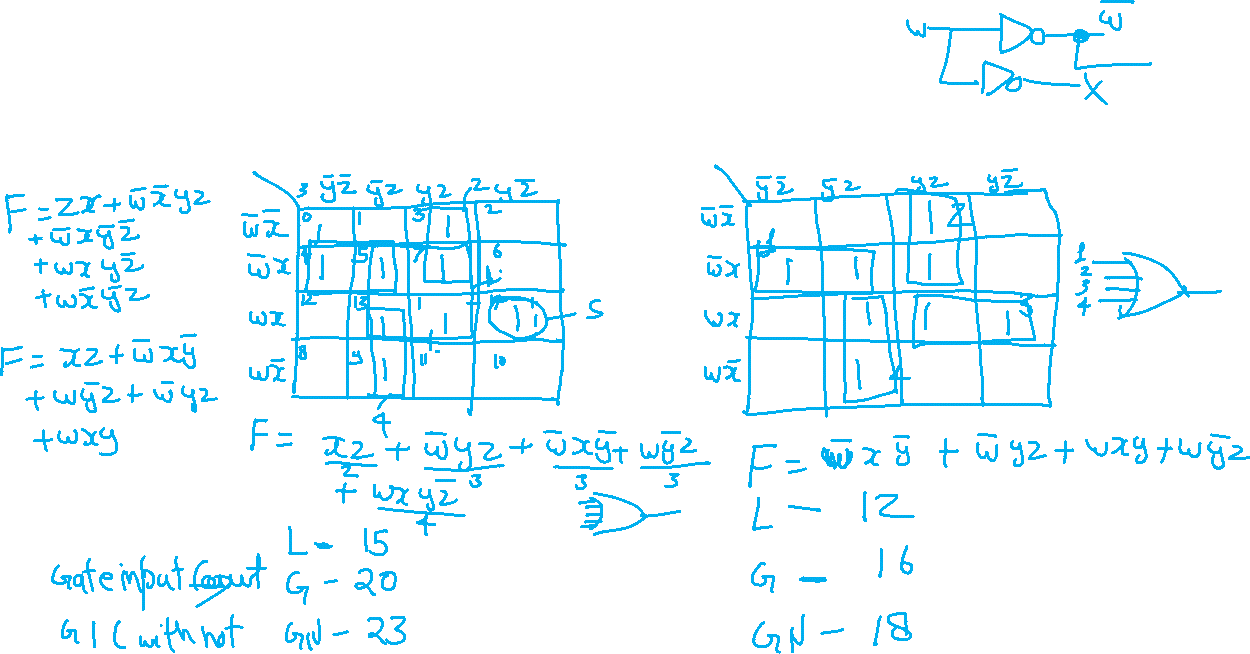 w w̅
X
F = zx + w̅x̅yz
+ w̅xy̅z̅
+ wxyz̅
+ wx̅y̅z
F = xz + w̅xy̅
+ wy̅z + w̅yz
+ wxy
3 y̅z̅ y̅z yz 2 yz̅
w̅x̅ 0 1 1 3 1 2
w̅x 4 1 5 1 7 1 6
wx 12 13 1 1 1 5
wx̅ 8 9 1 11 10
4
F = xz + w̅yz + w̅xy̅ + wy̅z
2 3 3 3
+ wxyz̅
4
L - 15
Gate input count G - 20
GIC with not GN - 23
y̅z̅ y̅z yz yz̅
w̅x̅ 1 2
w̅x 1 1 1 1
wx 1 1 1 3
wx̅ 1 4
1
2
3
4
F = w̅xy̅ + w̅yz + wxy + wy̅z
L - 12
G - 16
GN - 18